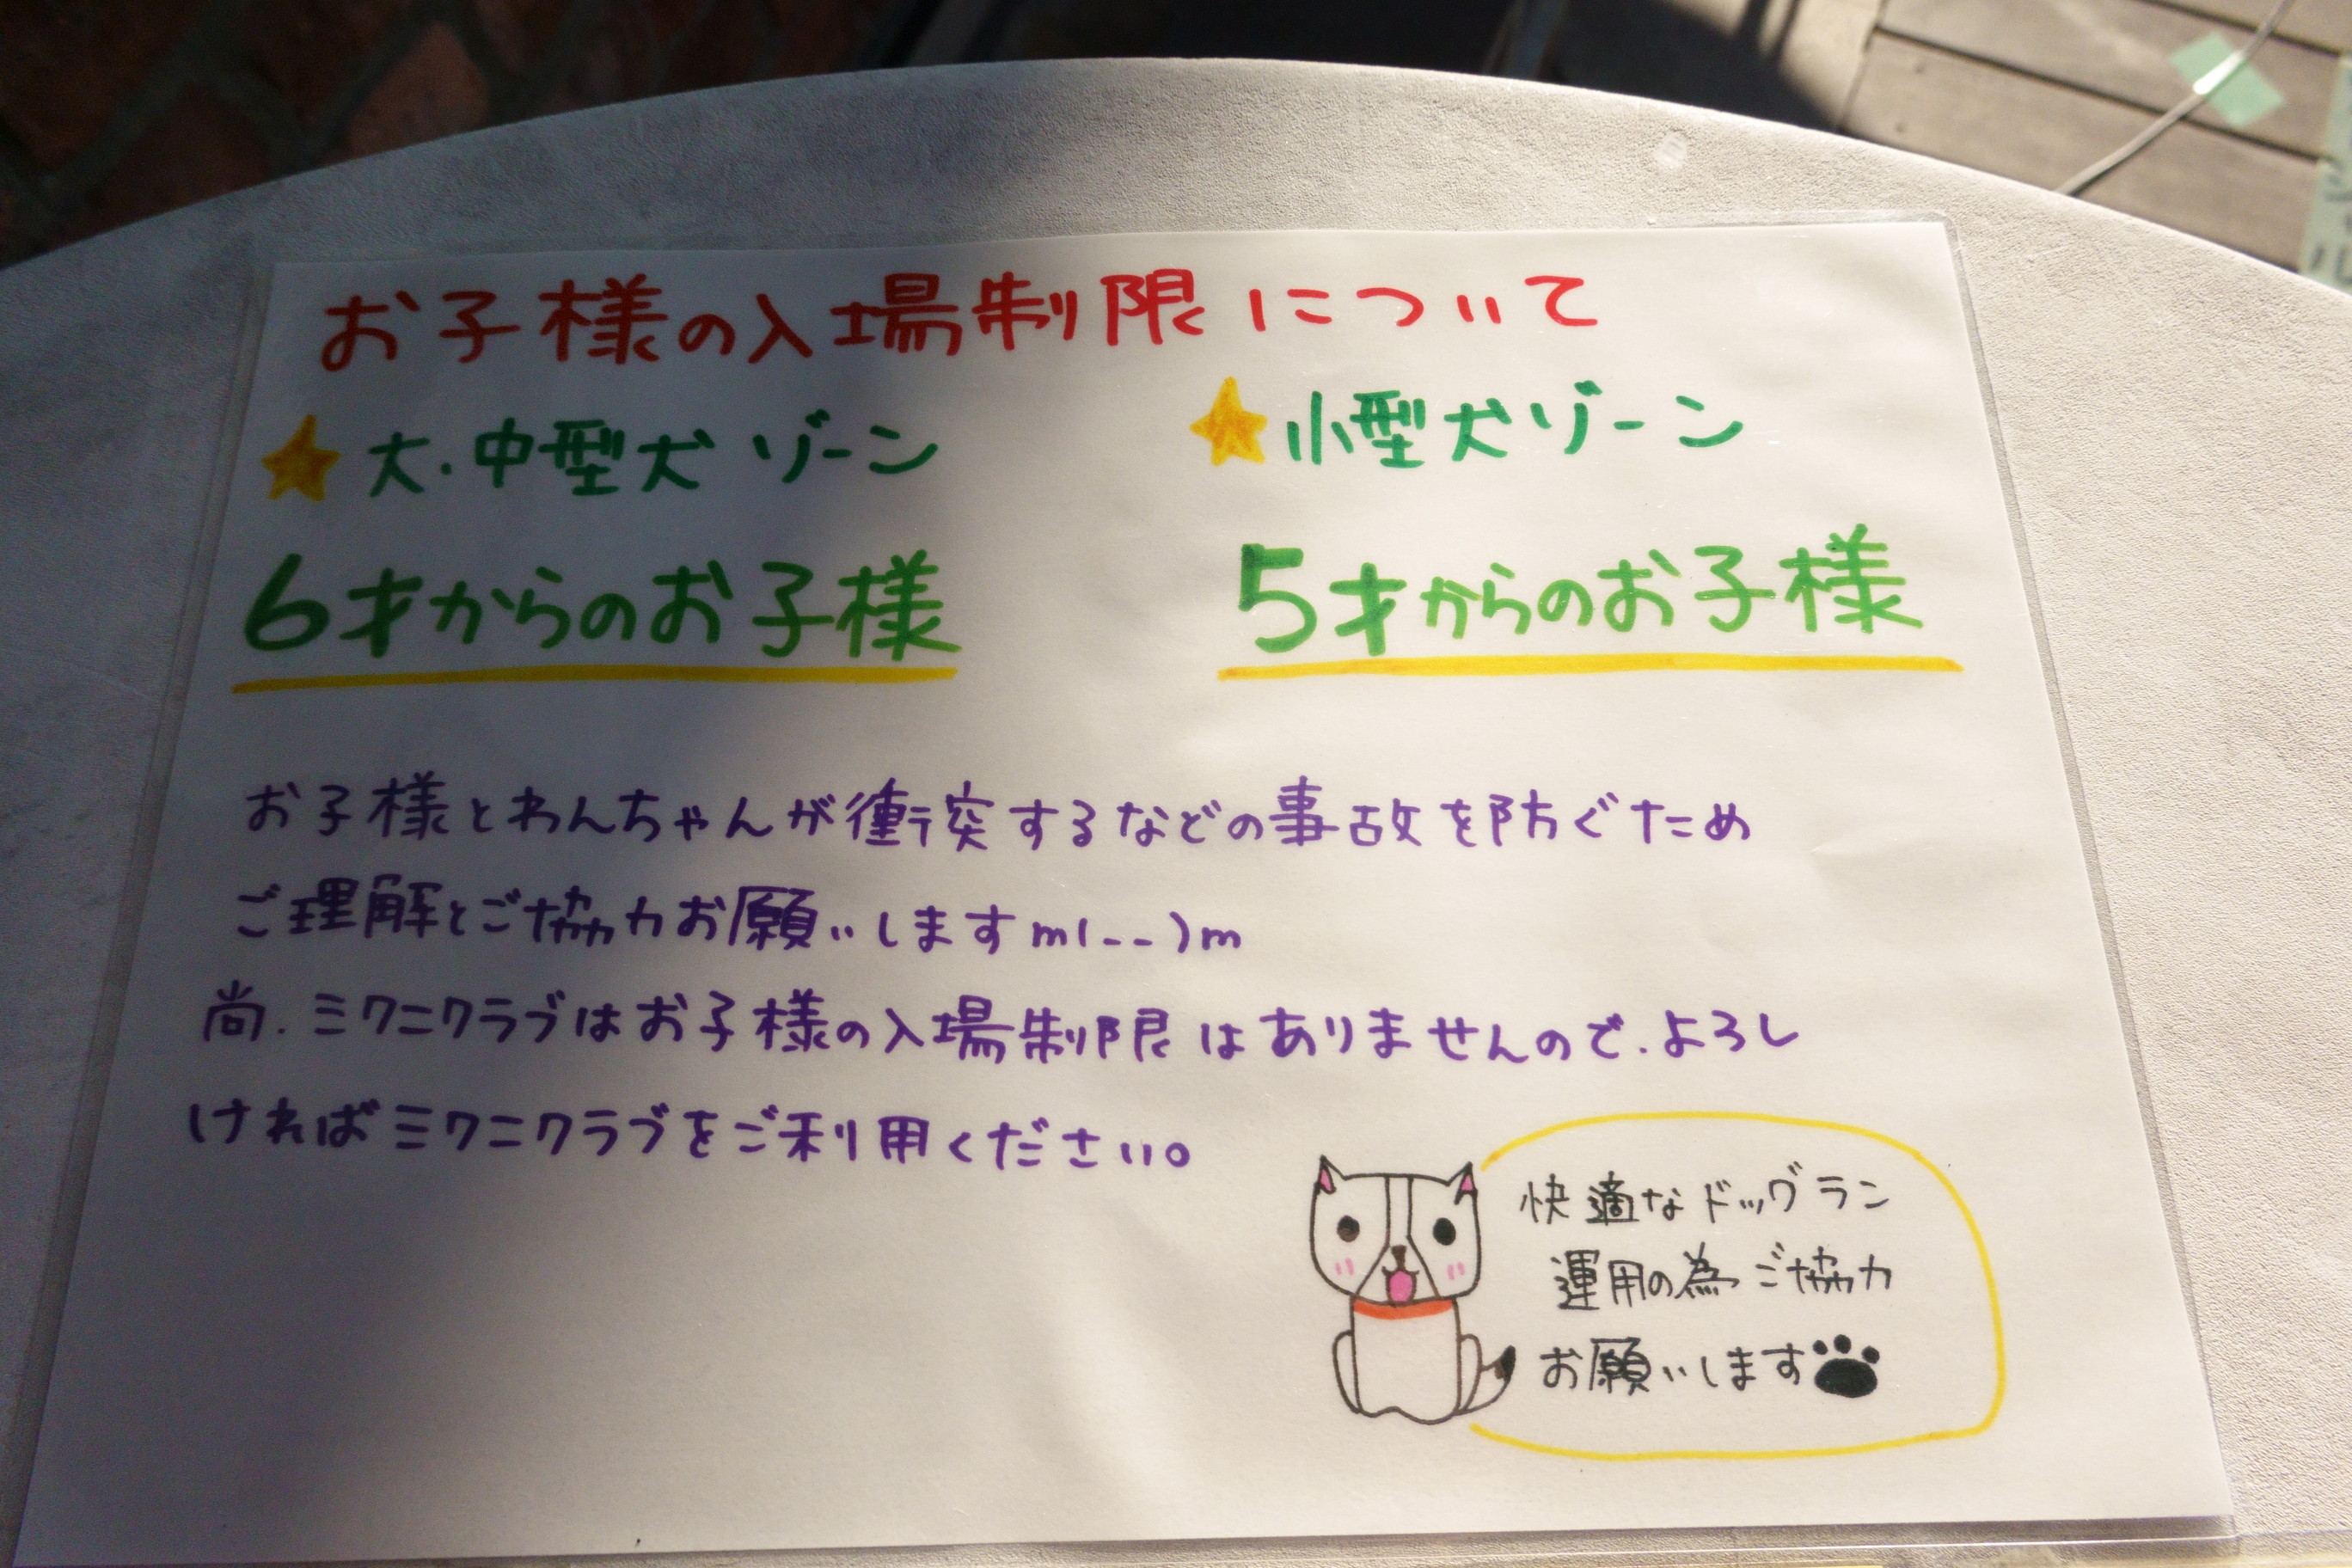 お子様の入場制限について
★大・中型犬ゾーン
6才からのお子様
★小型犬ゾーン
5才からのお子様
お子様とわんちゃんが衝突するなどの事故を防ぐため
ご理解とご協力お願いしますm(--)m
尚.ミクニクラブはお子様の入場制限はありませんので.よろし
ければミクニクラブをご利用ください。
快適なドッグラン
運用の為ご協力
お願いします